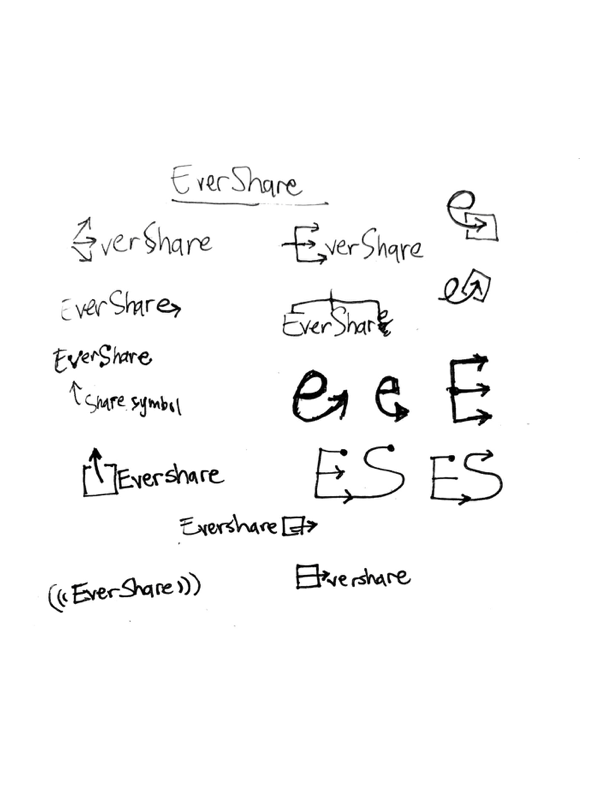 EverShare
EverShare
EverShare
e
EverShare
e
EverShare
EverShare
Share symbol
e e E
Evershare
ES ES
Evershare
((EverShare)))
Evershare